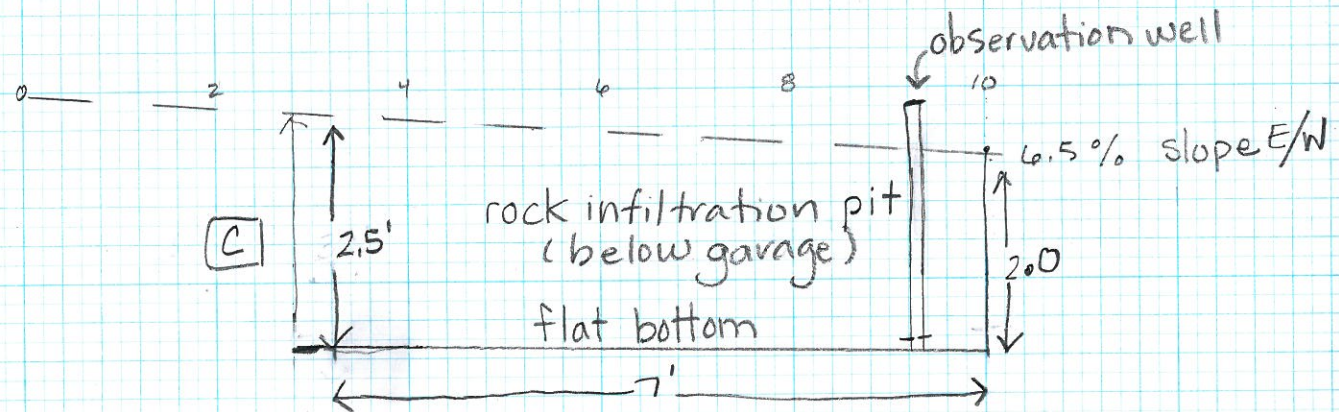 observation well
0 2 4 6 8 10
6.5% slope E/W
rock infiltration pit
(below garage)
C 2.5' 2.0
flat bottom
7'